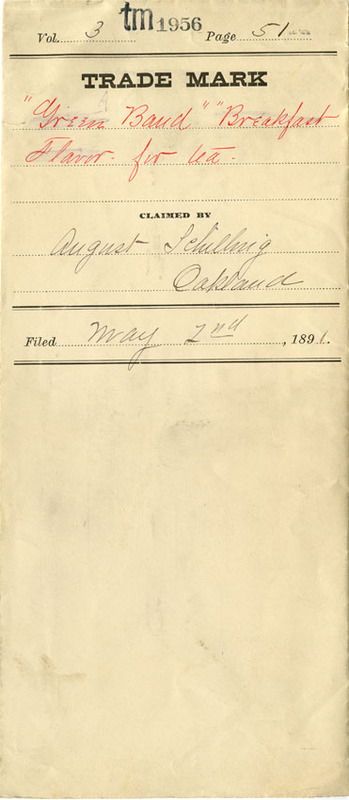 tm 1956
Vol. 3 Page 51
TRADE MARK
"Green Band" "Breakfast
Flavor. for tea.
CLAIMED BY
August Schilling
Oakland
Filed May 2nd, 1891.